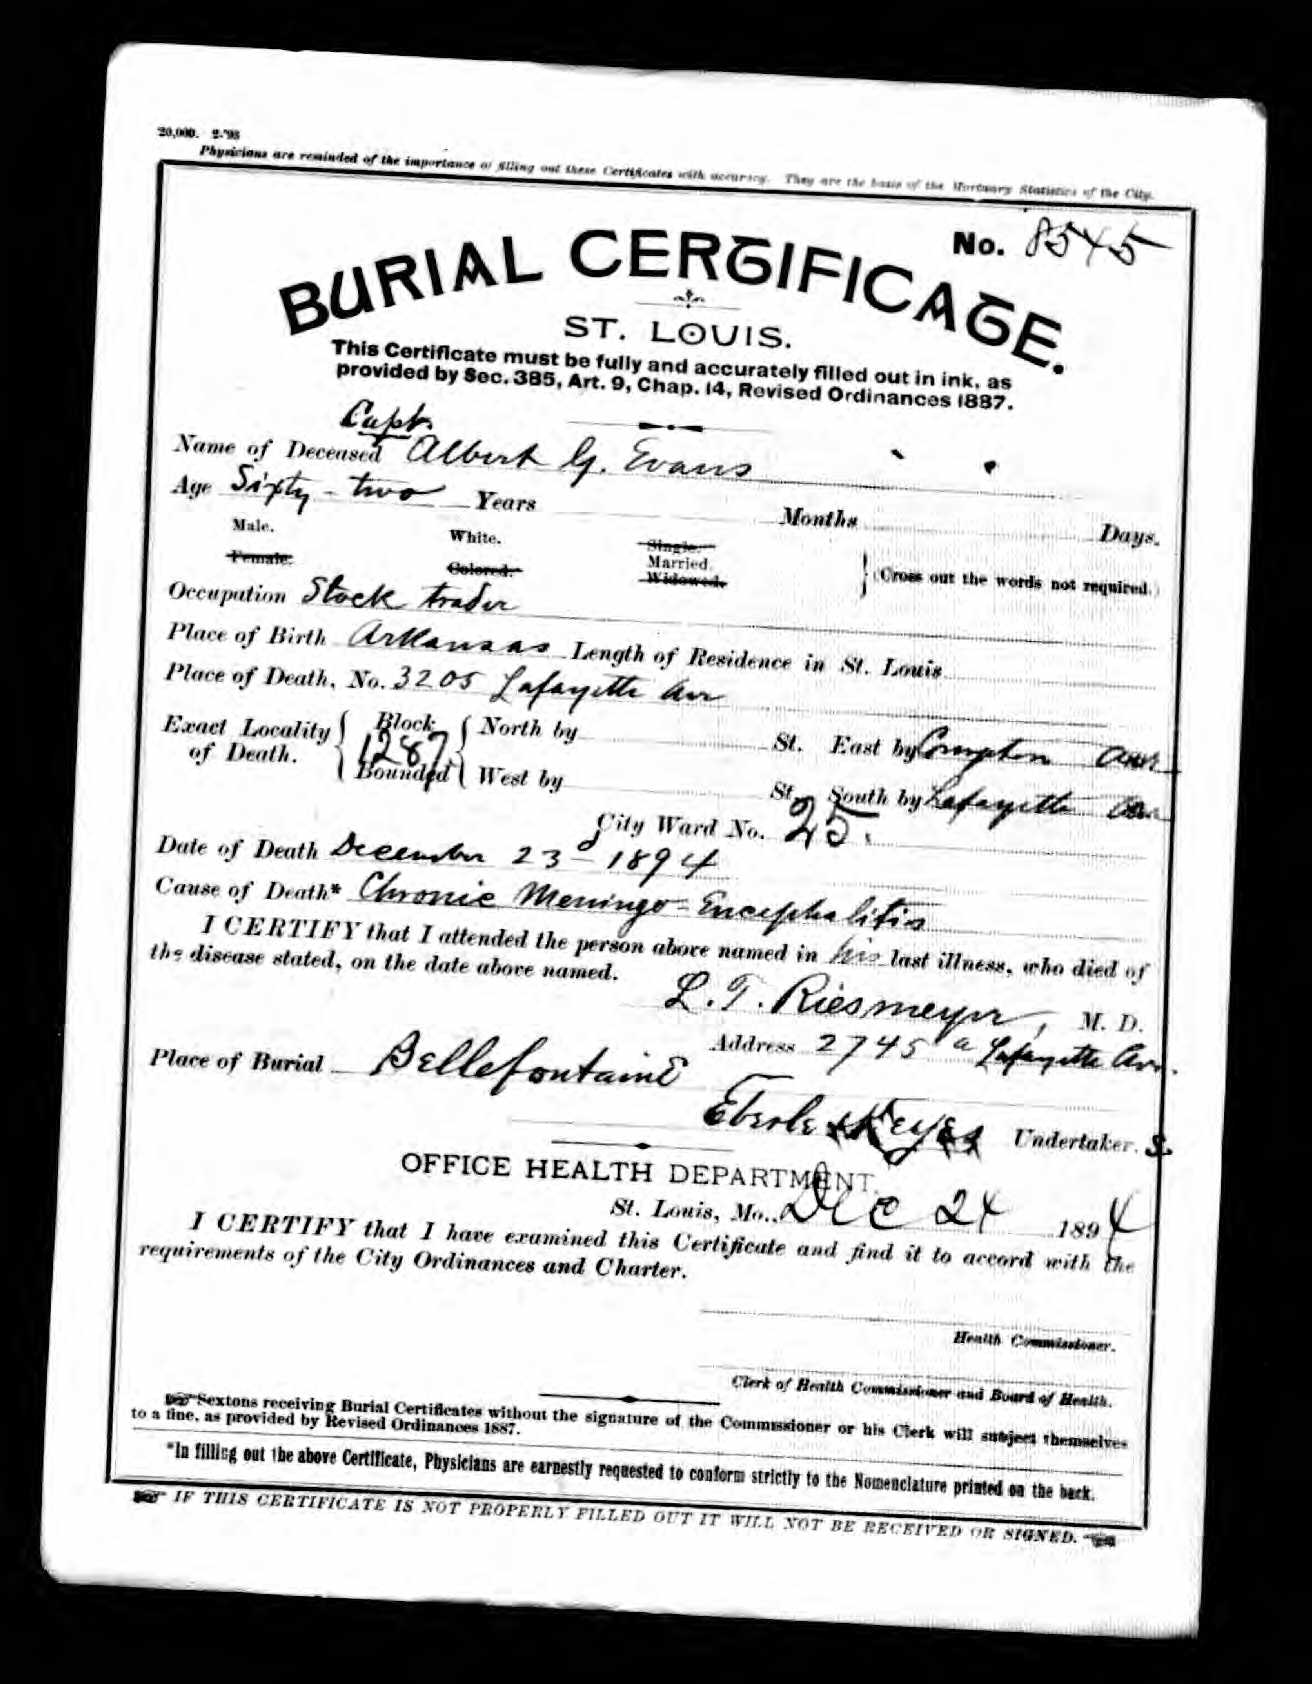 20,000. 2-'93
Physicians are reminded of the importance of filling out these Certificates with accuracy. They are the basis of the Mortuary Statistics of the City.
No. 8545
BURIAL CERTIFICATE.
ST. LOUIS.
This Certificate must be fully and accurately filled out in ink, as
provided by Sec. 385, Art. 9, Chap. 14, Revised Ordinances 1887.
Capt.
Name of Deceased Albert G. Evans
Age Sixty-two Years Months Days.
Male. White. Single.
Married.
Female. Colored. Widowed. (Cross out the words not required.)
Occupation Stock trader
Place of Birth Arkansas Length of Residence in St. Louis
Place of Death, No. 3205 Lafayette Ave
Exact Locality of Death. Block 1287 Bounded
North by St. East by Compton Ave
West by St. South by Lafayette Ave
City Ward No. 25.
Date of Death December 23d 1894
Cause of Death* Chronic Meningo-Encephalitis
I CERTIFY that I attended the person above named in his last illness, who died of
the disease stated, on the date above named.
L. T. Riesmeyer, M. D.
Address 2745 a Lafayette Ave.
Place of Burial Bellefontaine
Eberle & Keyes Undertaker.s.
OFFICE HEALTH DEPARTMENT.
St. Louis, Mo., Dec 24 1894
I CERTIFY that I have examined this Certificate and find it to accord with the
requirements of the City Ordinances and Charter.
Health Commissioner.
Clerk of Health Commissioner and Board of Health.
Sextons receiving Burial Certificates without the signature of the Commissioner or his Clerk will subject themselves
to a fine, as provided by Revised Ordinances 1887.
*In filling out the above Certificate, Physicians are earnestly requested to conform strictly to the Nomenclature printed on the back.
IF THIS CERTIFICATE IS NOT PROPERLY FILLED OUT IT WILL NOT BE RECEIVED OR SIGNED.